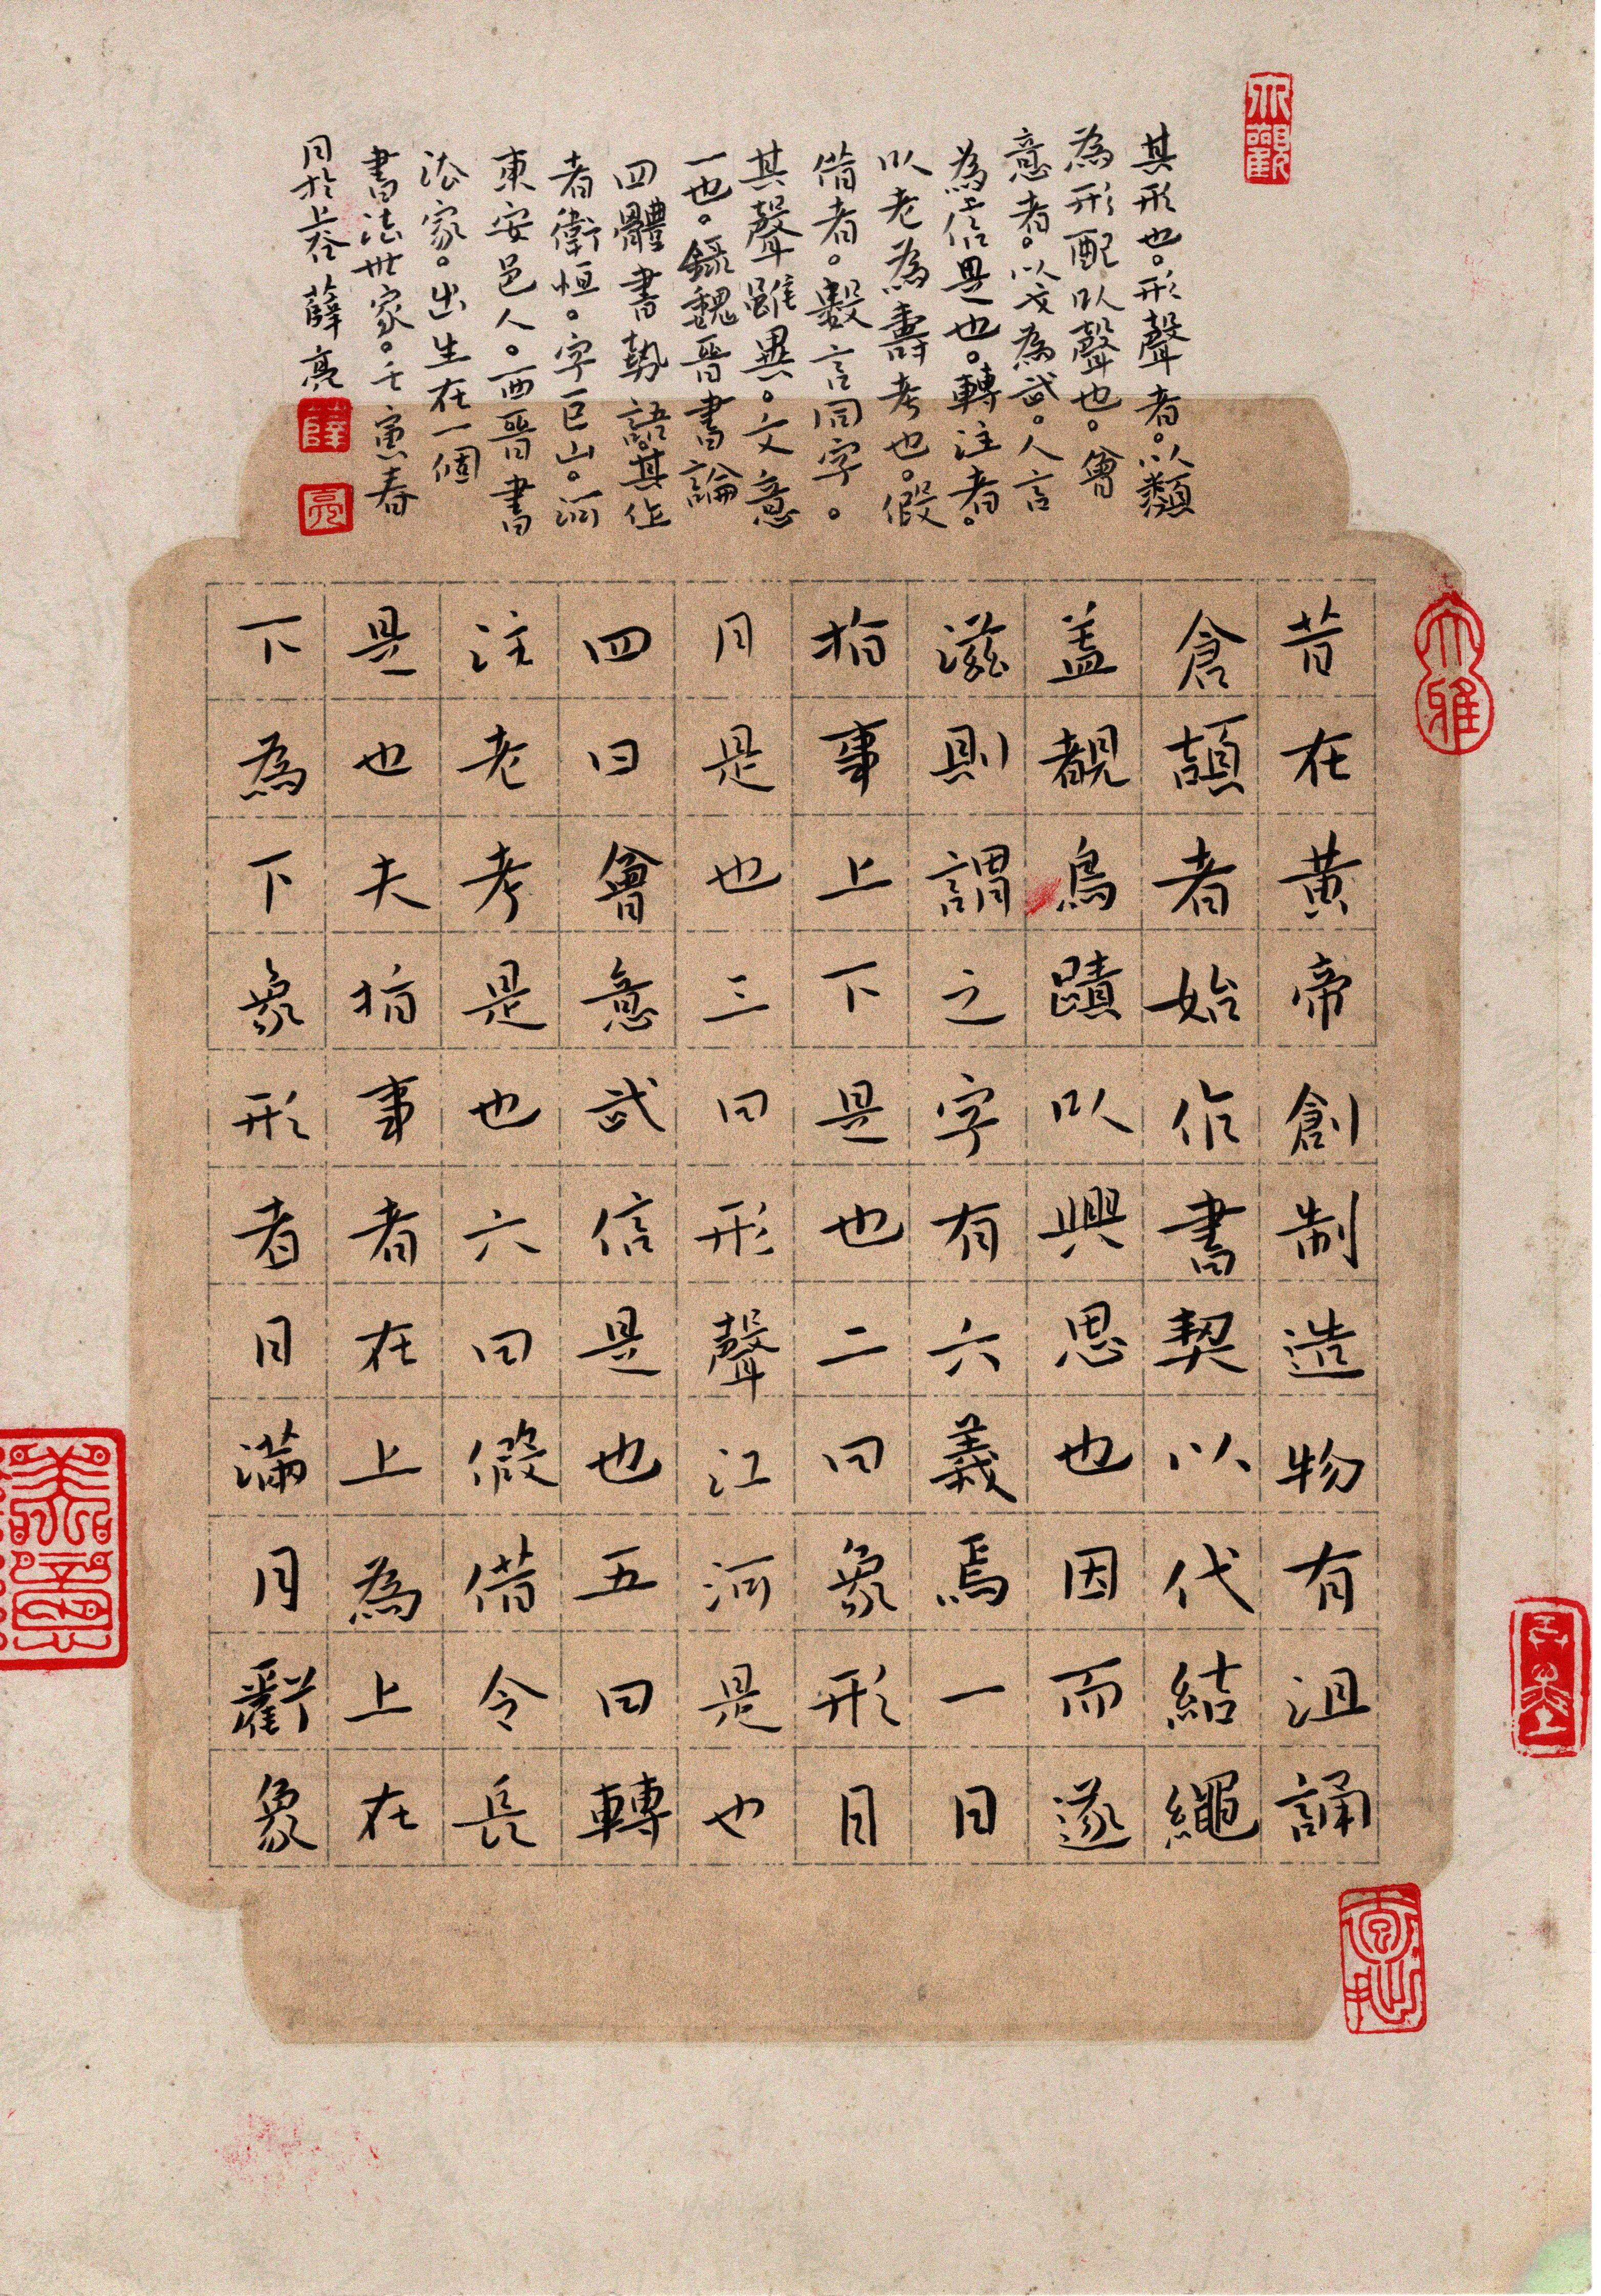 昔在黄帝創制造物有沮誦
倉頡者始作書契以代結繩
盖覩鳥蹟以興思也因而遂
滋則謂之字有六義焉一曰
指事上下是也二曰象形日
月是也三曰形聲江河是也
四曰會意武信是也五曰轉
注老考是也六曰假借令長
是也夫指事者在上為上在
下為下象形者日滿月虧象
其形也。形聲者。以類
為形配以聲也。會
意者。以戈為武。人言
為信是也。轉注者。
以老為壽考也。假
借者。數言同字。
其聲雖異。文意
一也。錄魏晋書論
四體書勢語。其作
者衛恒。字巨山。河
東安邑人。西晋書
法家。出生在一個
書法世家。壬寅春
月於上谷薛亮
薛
亮
大觀
大雅